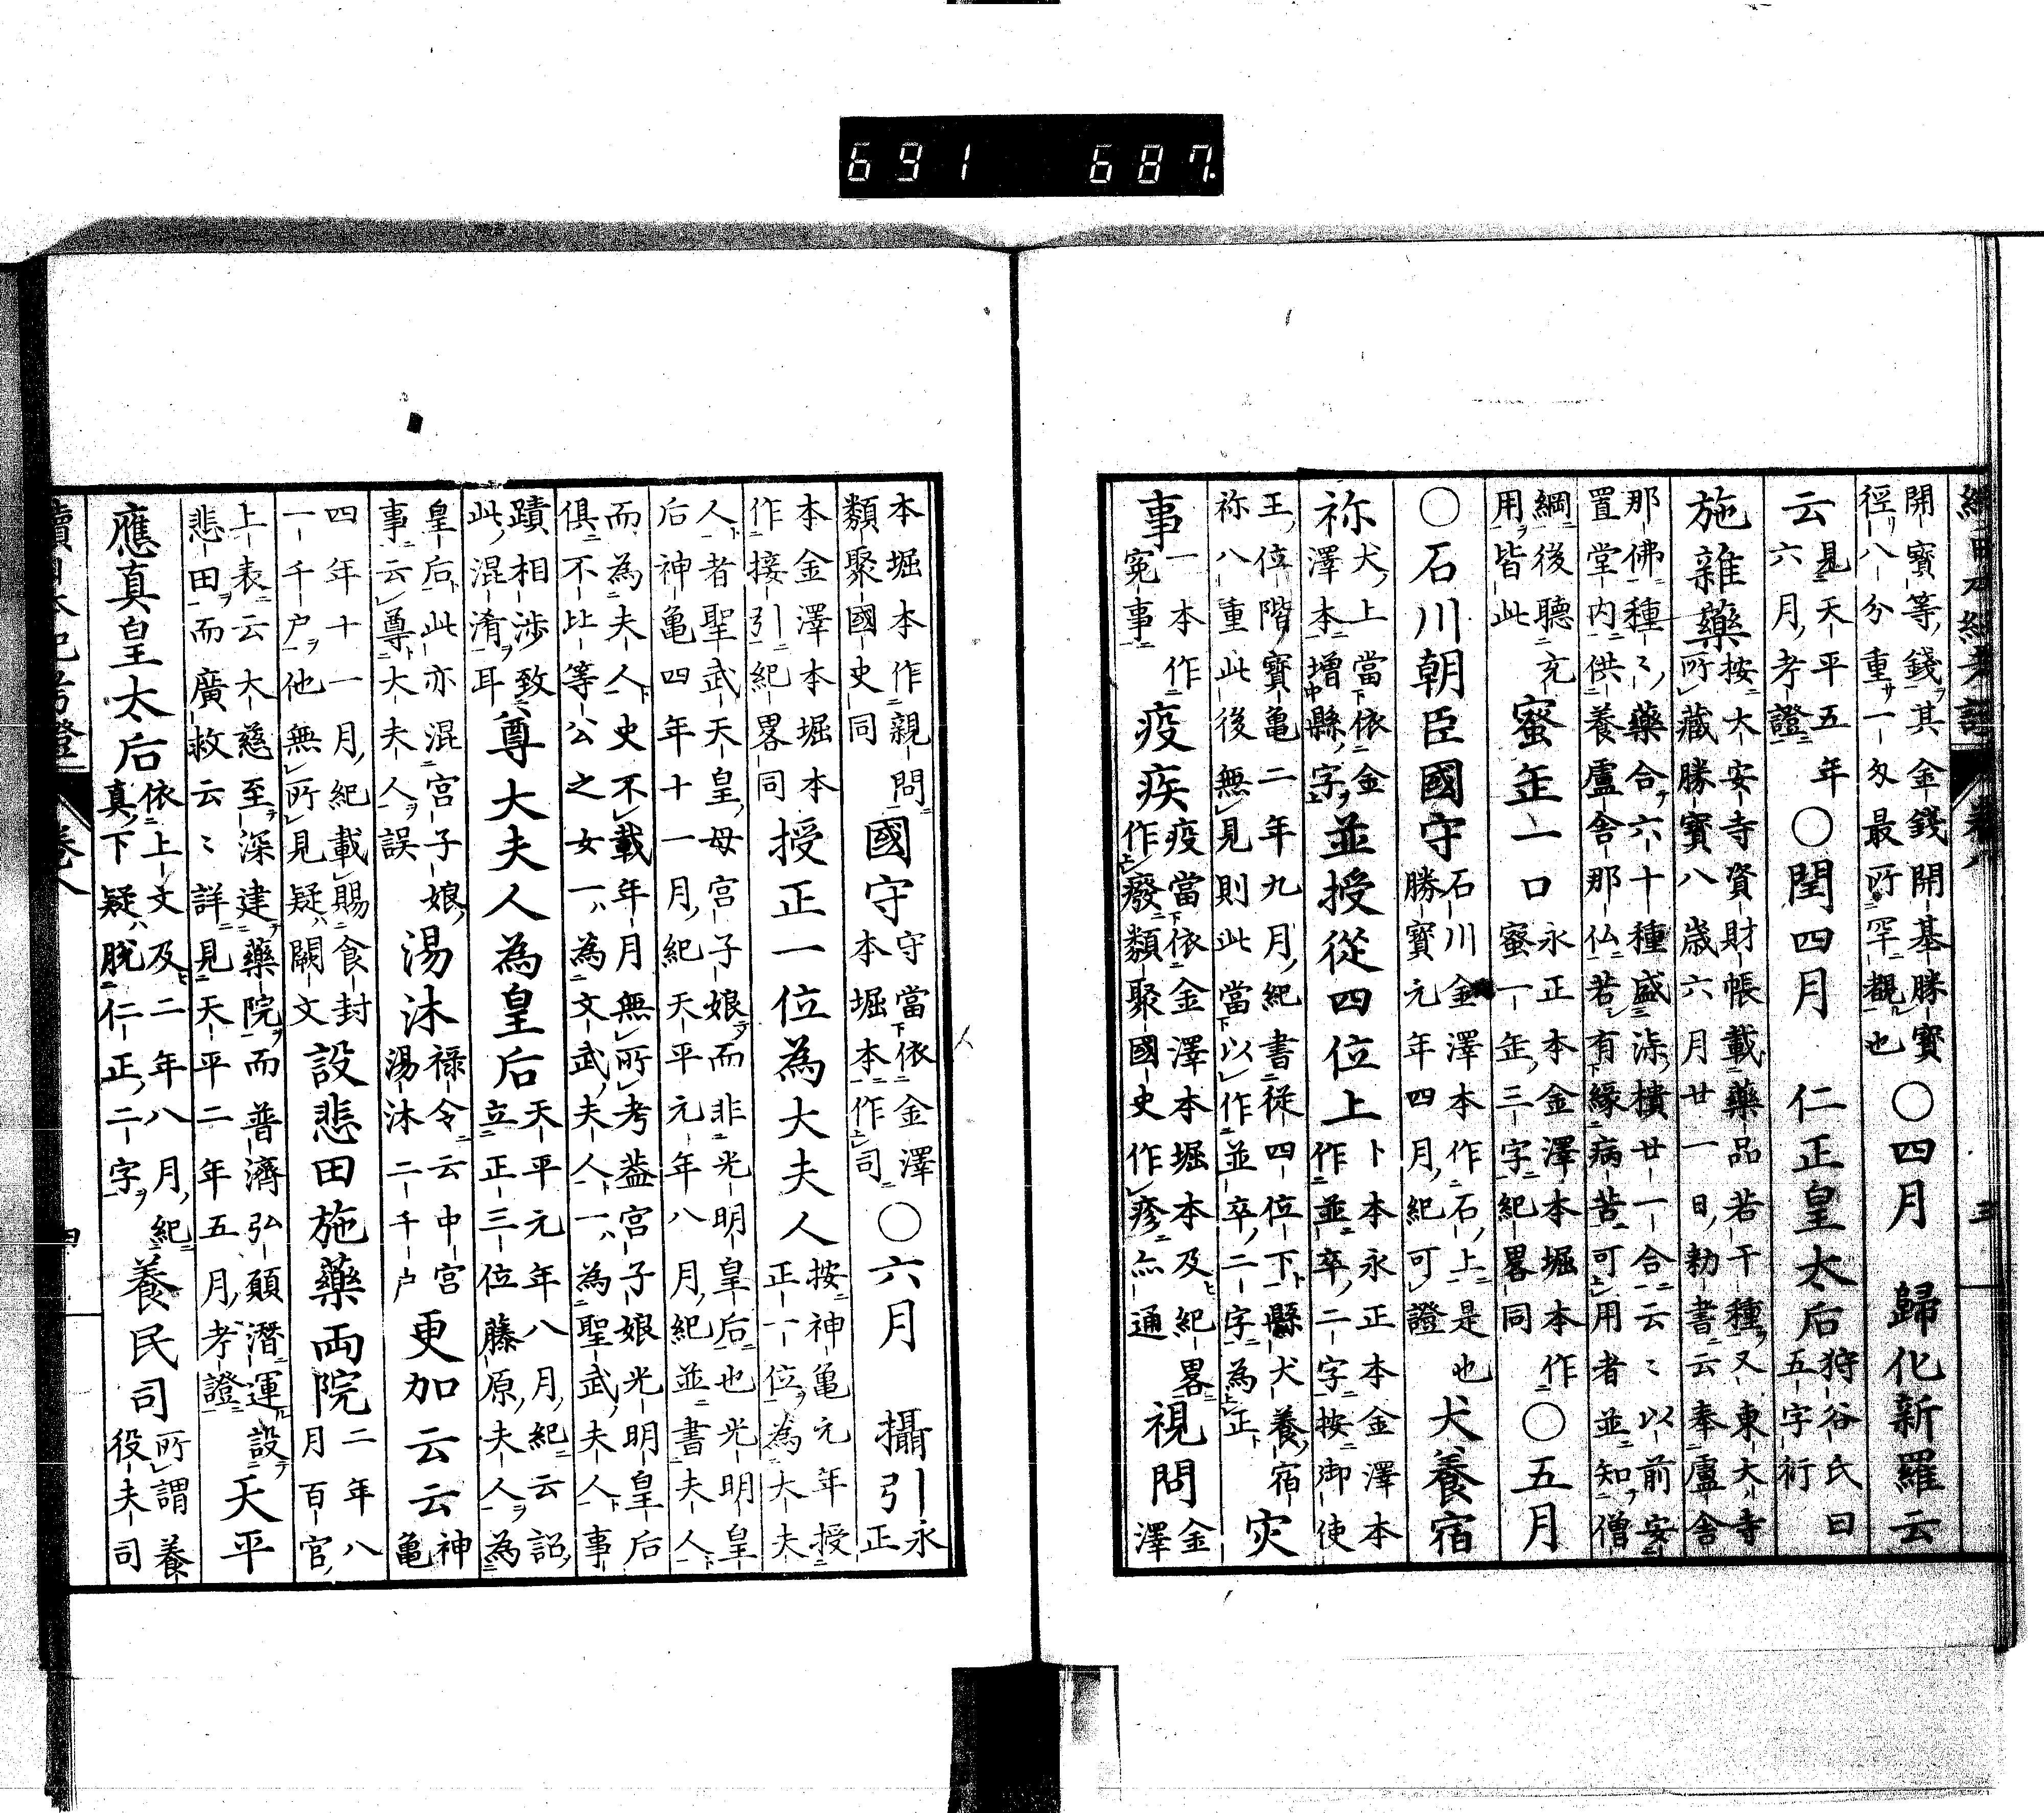 691 687.
續日本紀考證 卷八 三
開寶等錢其金錢開基勝寶
徑八分重一匁最所罕觀也
○四月 歸化新羅云
云
見天平五年
六月考證
○閏四月 仁正皇太后
狩谷氏曰
五字衍
施雜藥
按大安寺資財帳載藥品若干種又東大寺
所藏勝寶八歳六月廿一日勅書云奉盧舍
那佛種〻藥合六十種盛漆樻廿一合云〻以前安
置堂内供養盧舍那仏若有緣病苦可用者並知僧
綱後聽充
用皆此
蜜缶一口
永正本金澤本堀本作
蜜一缶三字紀畧同
○五月
○石川朝臣國守
石川金澤本作石上是也
勝寶元年四月紀可證
犬養宿
祢
犬上當依金
澤本増縣字
並授從四位上
卜本永正本金澤本
作並卒二字按御使
王位階寶亀二年九月紀書從四位下縣犬養宿
祢八重此後無見則此當以作並卒二字為正
灾
事
一本作
寃事
疫疾
疫當依金澤本堀本及紀畧
作癈類聚國史作疹亦通
視問
金
澤
本堀本作親問
類聚國史同
國守
守當依金澤
本堀本作司
○六月 攝引
永
正
本金澤本堀本
作接引紀畧同
授正一位為大夫人
按神亀元年授
正一位為大夫
人者聖武天皇母宮子娘而非光明皇后也光明皇
后神亀四年十一月紀天平元年八月紀並書夫人
而為夫人史不載年月無所考蓋宮子娘光明皇后
倶不比等公之女一為文武夫人一為聖武夫人事
蹟相渉致
此混淆耳
尊大夫人為皇后
天平元年八月紀云詔
立正三位藤原夫人為
皇后此亦混宮子娘
事云尊大夫人誤
湯沐
禄令云中宮
湯沐二千戸
更加云云
神
亀
四年十一月紀載賜食封
一千戸他無所見疑闕文
設悲田施藥両院
二年八
月百官
上表云大慈至深建藥院而普濟弘願潛運設
悲田而廣救云〻詳見天平二年五月考證
天平
應真皇太后
依上文及二年八月紀
真下疑脱仁正二字
養民司
所謂養
役夫司
續日本紀考證 卷八 四